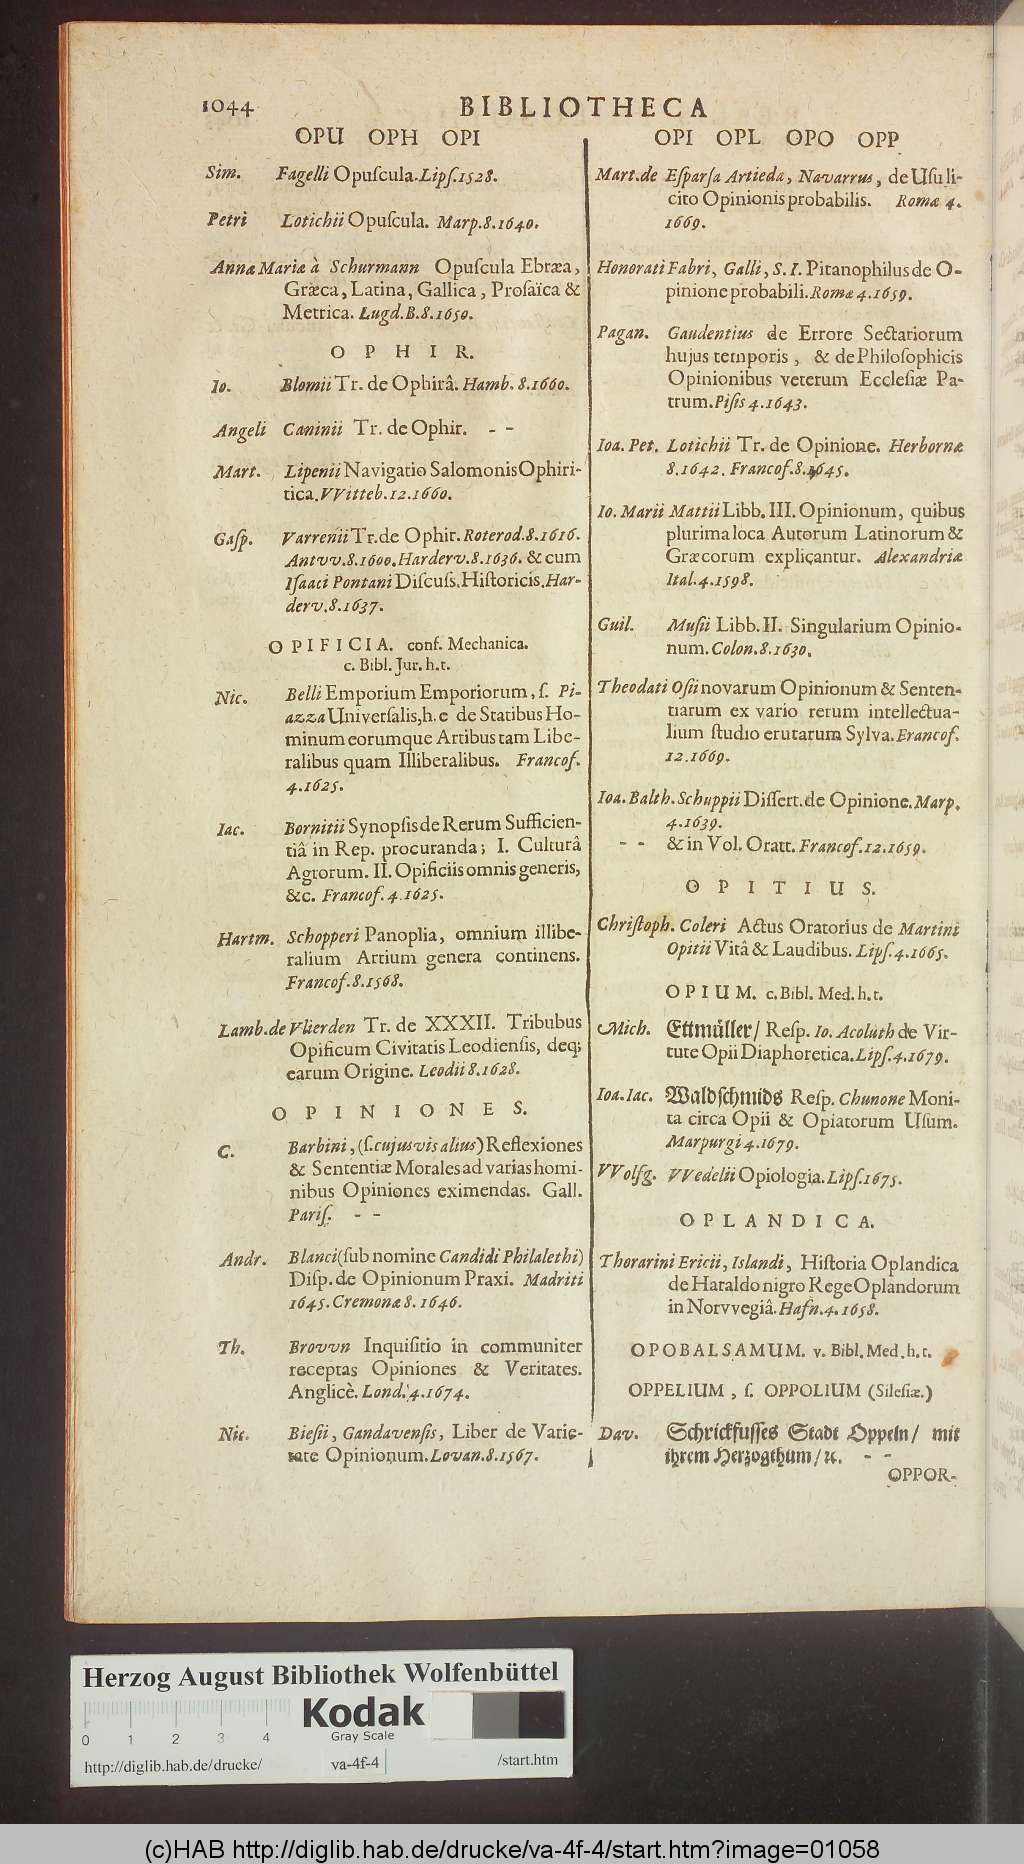 1044
BIBLIOTHECA
OPU OPH OPI
Sim. Fagelli Opuſcula. Lipſ. 1528.
Petri Lotichii Opuſcula. Marp. 8. 1640.
Annæ Mariæ à Schurmann Opuſcula Ebræa,
Græca, Latina, Gallica, Proſaïca &
Metrica. Lugd. B. 8. 1650.
OPHIR.
Io. Blomii Tr. de Ophirâ. Hamb. 8. 1660.
Angeli Caninii Tr. de Ophir. - -
Mart. Lipenii Navigatio Salomonis Ophiri-
tica. VVitteb. 12. 1660.
Gaſp. Varrenii Tr. de Ophir. Roterod. 8. 1616.
Antvv. 8. 1600. Harderv. 8. 1636. & cum
Iſaaci Pontani Diſcuſs. Hiſtoricis. Har-
derv. 8. 1637.
OPIFICIA. conf. Mechanica.
c. Bibl. Jur. h.t.
Nic. Belli Emporium Emporiorum, ſ. Pi-
azza Univerſalis, h. e de Statibus Ho-
minum eorumque Artibus tam Libe-
ralibus quam Illiberalibus. Francof.
4. 1625.
Iac. Bornitii Synopſis de Rerum Sufficien-
tiâ in Rep. procuranda; I. Culturâ
Agrorum. II. Opificiis omnis generis,
&c. Francof. 4. 1625.
Hartm. Schopperi Panoplia, omnium illibe-
ralium Artium genera continens.
Francof. 8. 1568.
Lamb. de Vlierden Tr. de XXXII. Tribubus
Opificum Civitatis Leodienſis, deq;
earum Origine. Leodii 8. 1628.
OPINIONES.
C. Barbini, (ſ. cujusvis alius) Reflexiones
& Sententiæ Morales ad varias homi-
nibus Opiniones eximendas. Gall.
Pariſ. - -
Andr. Blanci (ſub nomine Candidi Philalethi)
Diſp. de Opinionum Praxi. Madriti
1645. Cremonæ 8. 1646.
Th. Brovvn Inquiſitio in communiter
receptas Opiniones & Veritates.
Anglicè. Lond. 4. 1674.
Nic. Bieſii, Gandavenſis, Liber de Varie-
tate Opinionum. Lovan. 8. 1567.
OPI OPL OPO OPP
Mart. de Eſparſa Artieda, Navarrus, de Uſu li-
cito Opinionis probabilis. Romæ 4.
1669.
Honorati Fabri, Galli, S. I. Pitanophilus de O-
pinione probabili. Romæ 4. 1659.
Pagan. Gaudentius de Errore Sectariorum
hujus temporis, & de Philoſophicis
Opinionibus veterum Eccleſiæ Pa-
trum. Piſis 4. 1643.
Ioa. Pet. Lotichii Tr. de Opinione. Herbornæ
8. 1642. Francof. 8. 1645.
Io. Marii Mattii Libb. III. Opinionum, quibus
plurima loca Autorum Latinorum &
Græcorum explicantur. Alexandriæ
Ital. 4. 1598.
Guil. Muſii Libb. II. Singularium Opinio-
num. Colon. 8. 1630.
Theodati Oſii novarum Opinionum & Senten-
tiarum ex vario rerum intellectua-
lium ſtudio erutarum Sylva. Francof.
12. 1669.
Ioa. Balth. Schuppii Diſſert. de Opinione. Marp.
4. 1639.
- - & in Vol. Oratt. Francof. 12. 1659.
OPITIUS.
Chriſtoph. Coleri Actus Oratorius de Martini
Opitii Vitâ & Laudibus. Lipſ. 4. 1665.
OPIUM. c. Bibl. Med. h. t.
Mich. Ettmüller / Reſp. Io. Acoluth de Vir-
tute Opii Diaphoretica. Lipſ. 4. 1679.
Ioa. Iac. Waldſchmids Reſp. Chunone Moni-
ta circa Opii & Opiatorum Uſum.
Marpurgi 4. 1679.
VVolfg. VVedelii Opiologia. Lipſ. 1675.
OPLANDICA.
Thorarini Ericii, Islandi, Hiſtoria Oplandica
de Haraldo nigro Rege Oplandorum
in Norvvegiâ. Hafn. 4. 1658.
OPOBALSAMUM. v. Bibl. Med. h. t.
OPPELIUM, ſ. OPPOLIUM (Sileſiæ.)
Dav. Schrickfuſſes Stadt Oppeln / mit
ihrem Herzogthum / ꝛc. - -
OPPOR-
Herzog August Bibliothek Wolfenbüttel
Kodak
Gray Scale
0 1 2 3 4
http://diglib.hab.de/drucke/ va-4f-4 /start.htm
(c)HAB http://diglib.hab.de/drucke/va-4f-4/start.htm?image=01058